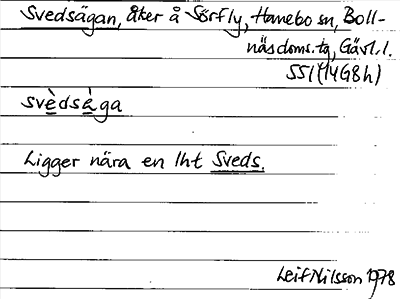 Svedsägan, åker å Sörfly, Hanebo sn, Boll-
näs doms. tg, Gävl. l.
SSI (14G8h)
svèdsä̀ga
Ligger nära en lht Sveds.
Leif Nilsson 1978